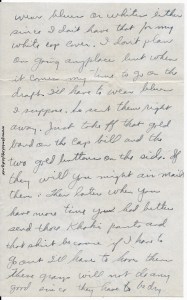 wear blues or whites either
since I don't have that for my
white cap cover. I don't plan
on going anyplace but when
it comes my time to go on the
draft I'll have to wear blues
I suppose. So send them right
away. Just take off that gold
band on the cap bill and the
two gold buttons on the side. If
they will you might air mail
them. Then later when you
have more time you had better
send those khaki pants and
shirt because if I have to
go out I'll have to have them
These grays will not do any
good since they have to be dry